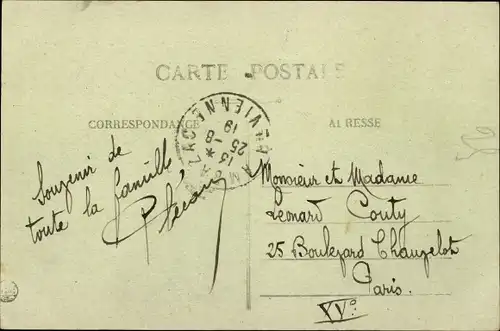 CARTE POSTALE
CORRESPONDANCE
ADRESSE
HTE VIENNE
13 * 8
25
19
Souvenir de
toute la famille
Monsieur et Madame
Leonard Couty
25 Boulevard Chauvelot
Paris.
XVe